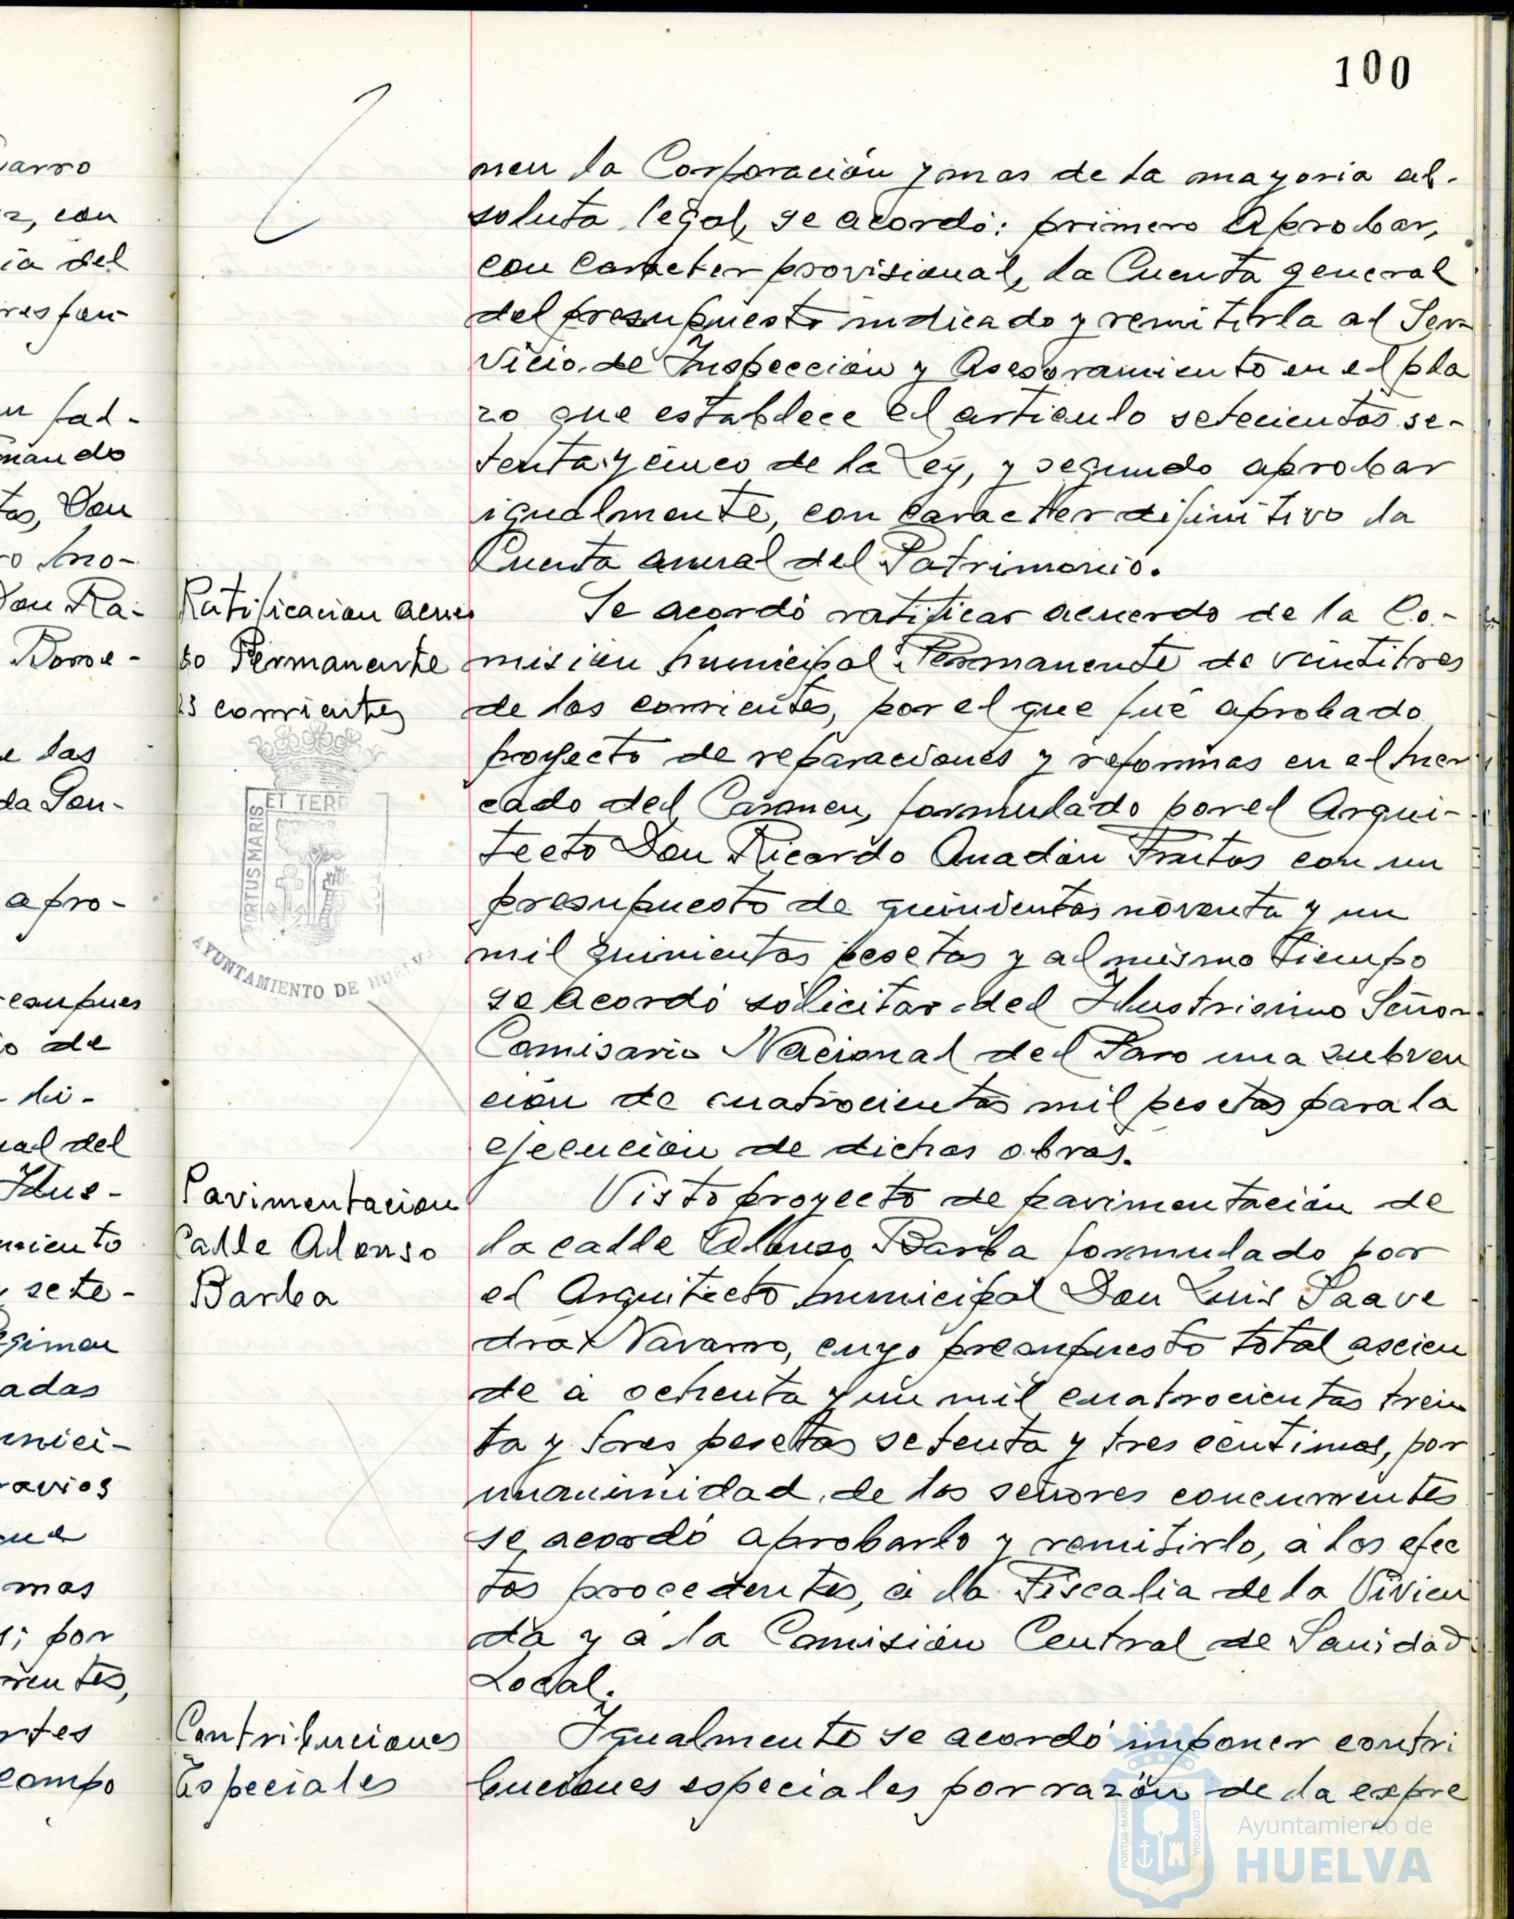 100
nen la Corporación y mas de la mayoria ab-
soluta legal, se acordó: primero Aprobar,
con caracter provisional, la Cuenta general
del presupuesto indicado y remitirla al Ser-
vicio de Inspección y Asesoramiento en el pla
zo que establece el articulo setecientos se-
tenta y cinco de la Ley, y segundo aprobar
igualmente, con caracter difinitivo la
Cuenta anual del Patrimonio.
Ratificacion acuer
do Permanente
23 corrientes
Se acordó ratificar acuerdo de la Co-
mision Municipal Permanente de veintitres
de los corrientes, por el que fué aprobado
proyecto de reparaciones y reformas en el Mer
cado del Carmen, formulado por el Arqui-
tecto Don Ricardo Anadón Frutos con un
presupuesto de quinientas noventa y un
mil quinientas pesetas y al mismo tiempo
se acordó solicitar del Ilustrisimo Señor
Comisario Nacional del Paro una subven
ción de cuatrocientas mil pesetas para la
ejecución de dichas obras.
Pavimentacion
Calle Alonso
Barba
Visto proyecto de pavimentación de
la calle Alonso Barba formulado por
el Arquitecto Municipal Don Luis Saave
dra Navarro, cuyo presupuesto total ascien
de á ochenta y un mil cuatrocientas trein
ta y tres pesetas setenta y tres céntimos, por
unanimidad de los señores concurrentes
se acordó aprobarlo y remitirlo, á los efec
tos procedentes, á la Fiscalia de la Vivien
da y á la Comisión Central de Sanidad
Local.
Contribuciones
Especiales
Igualmente se acordó imponer contri
buciones especiales por razón de la expre
PORTUS MARIS
ET TERR
AYUNTAMIENTO DE HUELVA
arro
con
ia del
fal-
mando
tas, Don
Don Ra-
e las
apro-
io de
ual del
miento
y sete-
adas
avios
mas
por
rentes,
campo
PORTUS MARIS
CUSTODIA
Ayuntamiento de
HUELVA